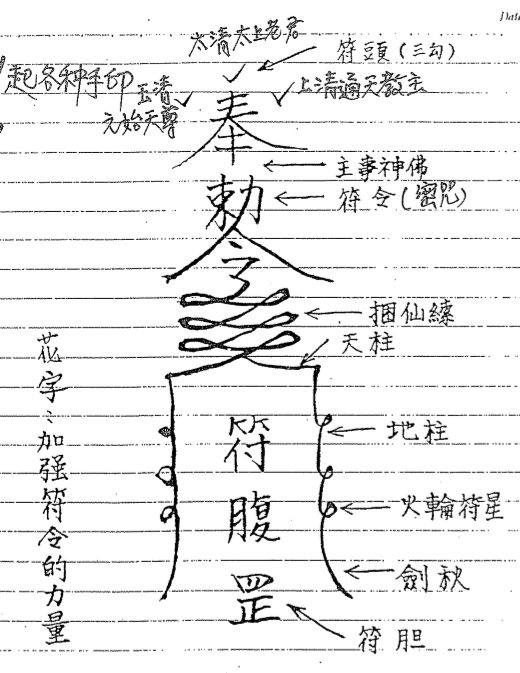 Data
太清太上老君
符頭(三勾)
起各种手印
玉清
元始天尊
上清通天教主
奉
主事神佛
勅
符令(密咒)
令
捆仙繩
天柱
花字:加强符令的力量
地柱
符
腹
火輪符星
罡
劍秋
符胆